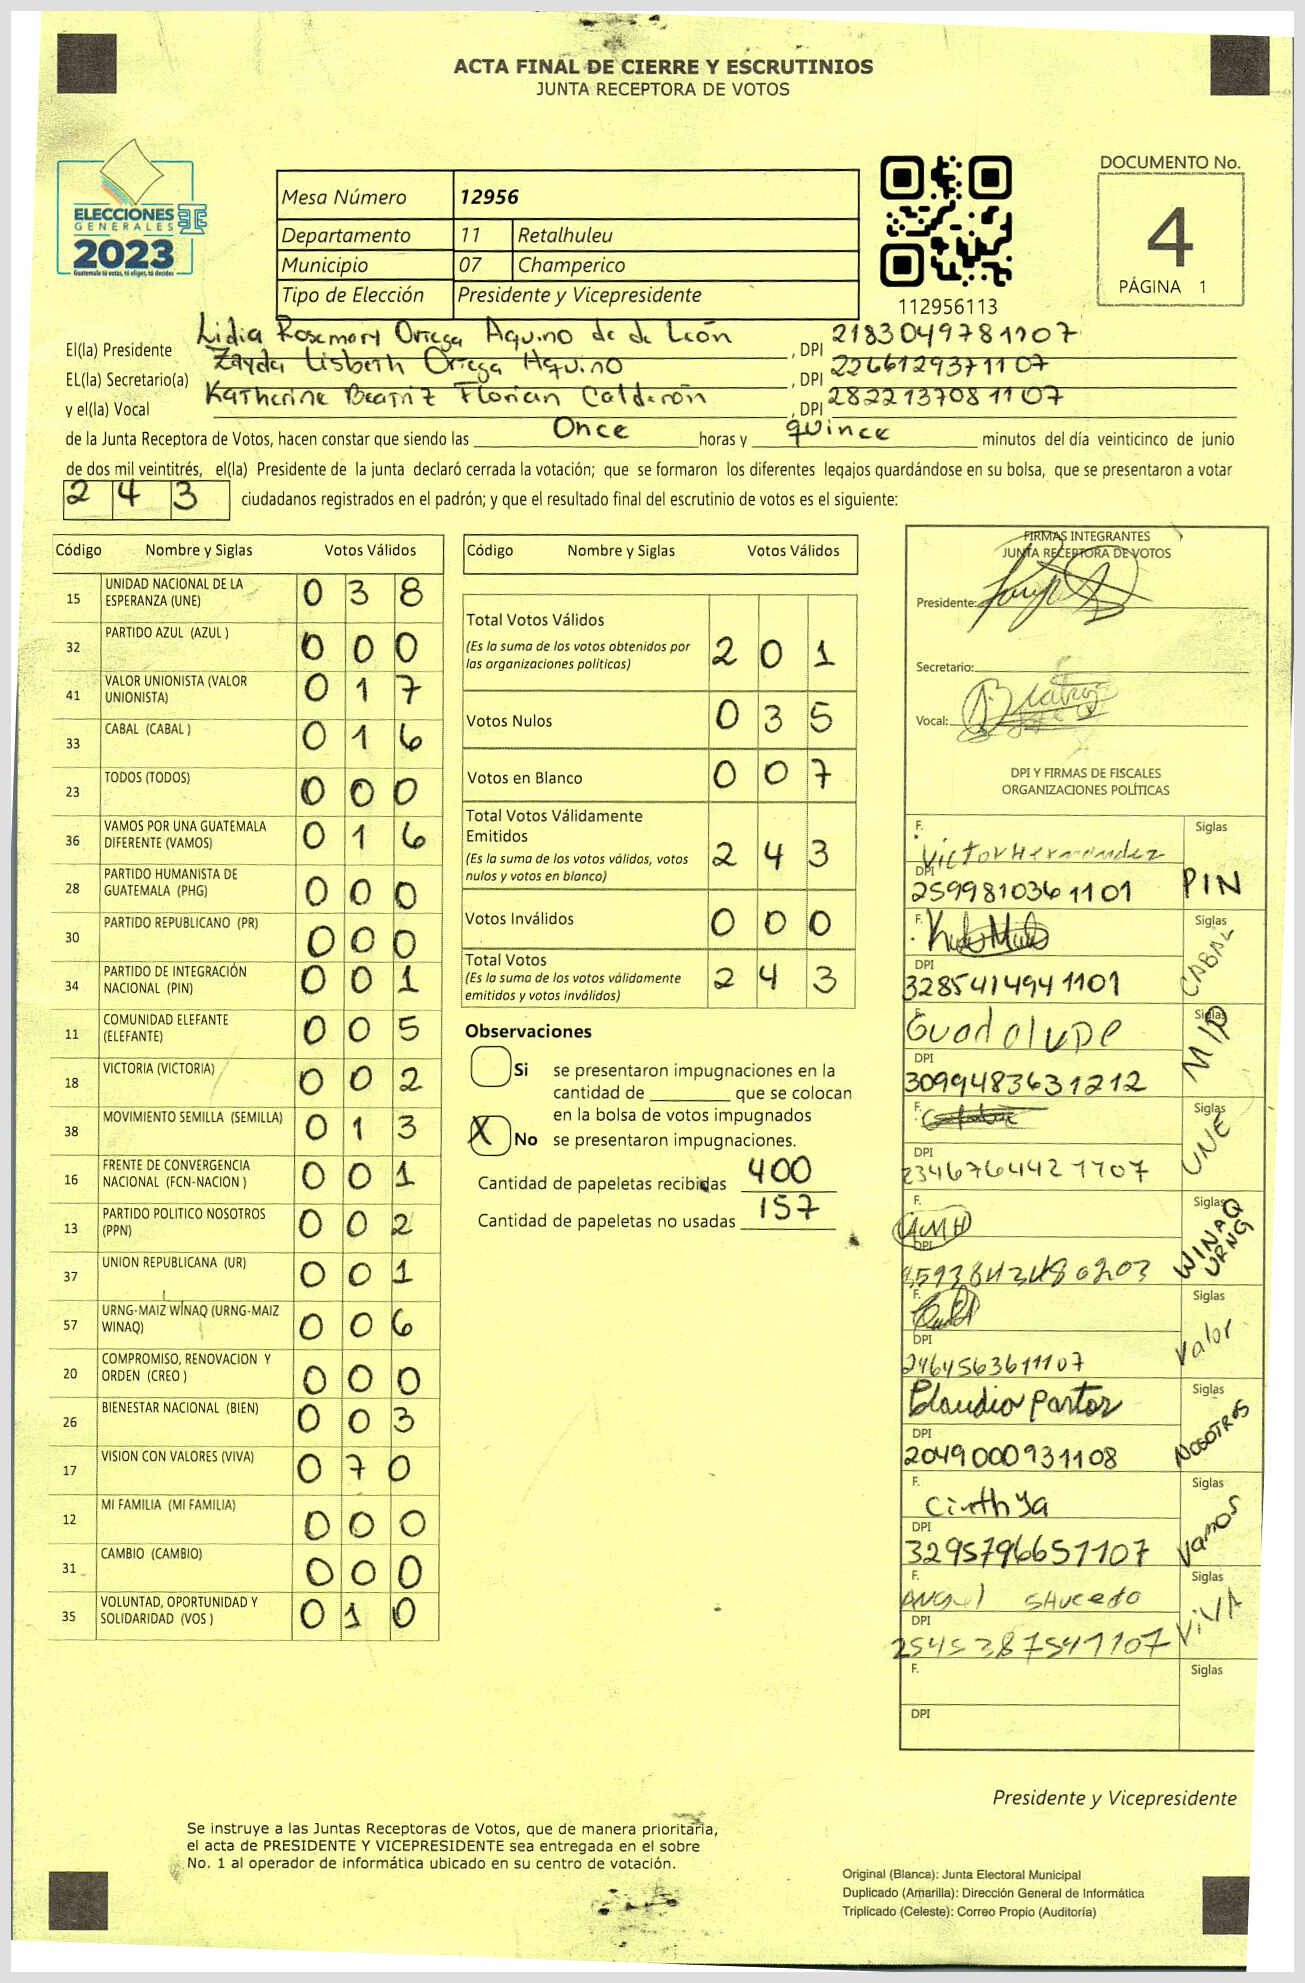 ACTA FINAL DE CIERRE Y ESCRUTINIOS
JUNTA RECEPTORA DE VOTOS
ELECCIONES
GENERALES
2023
Guatemala tú votas, tú eliges, tú decides
Mesa Número 12956
Departamento 11 Retalhuleu
Municipio 07 Champerico
Tipo de Elección Presidente y Vicepresidente
112956113
DOCUMENTO No.
4
PÁGINA 1
El(la) Presidente Lidia Rosemary Ortega Aquino de de León, DPI 2183049781107
EL(la) Secretario(a) Zayda Lisbeth Ortega Aquino, DPI 2266129371107
y el(la) Vocal Katherine Beatriz Florian Calderón, DPI 2822137081107
de la Junta Receptora de Votos, hacen constar que siendo las Once horas y quince minutos del día veinticinco de junio
de dos mil veintitrés, el(la) Presidente de la junta declaró cerrada la votación; que se formaron los diferentes legajos guardándose en su bolsa, que se presentaron a votar
243 ciudadanos registrados en el padrón; y que el resultado final del escrutinio de votos es el siguiente:
Código Nombre y Siglas Votos Válidos
15 UNIDAD NACIONAL DE LA ESPERANZA (UNE) 038
32 PARTIDO AZUL (AZUL ) 000
41 VALOR UNIONISTA (VALOR UNIONISTA) 017
33 CABAL (CABAL ) 016
23 TODOS (TODOS) 000
36 VAMOS POR UNA GUATEMALA DIFERENTE (VAMOS) 016
28 PARTIDO HUMANISTA DE GUATEMALA (PHG) 000
30 PARTIDO REPUBLICANO (PR) 000
34 PARTIDO DE INTEGRACIÓN NACIONAL (PIN) 001
11 COMUNIDAD ELEFANTE (ELEFANTE) 005
18 VICTORIA (VICTORIA) 002
38 MOVIMIENTO SEMILLA (SEMILLA) 013
16 FRENTE DE CONVERGENCIA NACIONAL (FCN-NACION ) 001
13 PARTIDO POLITICO NOSOTROS (PPN) 002
37 UNION REPUBLICANA (UR) 001
57 URNG-MAIZ WINAQ (URNG-MAIZ WINAQ) 006
20 COMPROMISO, RENOVACION Y ORDEN (CREO ) 000
26 BIENESTAR NACIONAL (BIEN) 003
17 VISION CON VALORES (VIVA) 070
12 MI FAMILIA (MI FAMILIA) 000
31 CAMBIO (CAMBIO) 000
35 VOLUNTAD, OPORTUNIDAD Y SOLIDARIDAD (VOS ) 010
Código Nombre y Siglas Votos Válidos
Total Votos Válidos
(Es la suma de los votos obtenidos por las organizaciones políticas) 201
Votos Nulos 035
Votos en Blanco 007
Total Votos Válidamente Emitidos
(Es la suma de los votos válidos, votos nulos y votos en blanco) 243
Votos Inválidos 000
Total Votos
(Es la suma de los votos válidamente emitidos y votos inválidos) 243
Observaciones
Si se presentaron impugnaciones en la
cantidad de ________ que se colocan
en la bolsa de votos impugnados
X No se presentaron impugnaciones.
Cantidad de papeletas recibidas 400
Cantidad de papeletas no usadas 157
FIRMAS INTEGRANTES
JUNTA RECEPTORA DE VOTOS
Presidente:
Secretario:
Vocal:
DPI Y FIRMAS DE FISCALES
ORGANIZACIONES POLÍTICAS
F. Victor Hernandez Siglas
DPI 2599810361101 PIN
F. Siglas
DPI 3285414941101 CABAL
F. Guadalupe Siglas
DPI 3099483631212
F. Siglas
DPI 2346764421107 UNE
F. AMH Siglas
DPI WINAQ URNG
F. Siglas
DPI 2464563611107 Valor
F. Claudia Pastor Siglas
DPI 2049000931108 NOSOTROS
F. Cinthya Siglas
DPI 3295796651107 Vamos
F. Angel Saucedo Siglas
DPI 2545287541107 ViVA
F. Siglas
DPI
Presidente y Vicepresidente
Se instruye a las Juntas Receptoras de Votos, que de manera prioritaria,
el acta de PRESIDENTE Y VICEPRESIDENTE sea entregada en el sobre
No. 1 al operador de informática ubicado en su centro de votación.
Original (Blanca): Junta Electoral Municipal
Duplicado (Amarilla): Dirección General de Informática
Triplicado (Celeste): Correo Propio (Auditoría)